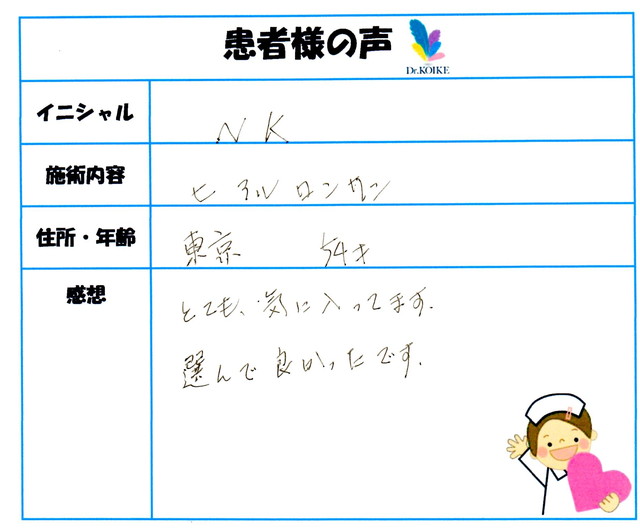 患者様の声
Dr.KOIKE
イニシャル N K
施術内容 ヒアルロンサン
住所・年齢 東京 54才
感想
とても、気に入ってます.
選んで良かったです.